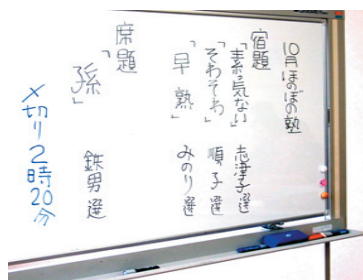 10月ほのぼの塾
宿題
「素っ気ない」 志津子選
「そわそわ」 順子選
「早熟」 みのり選
席題
「孫」 鉄男選
〆切り2時20分